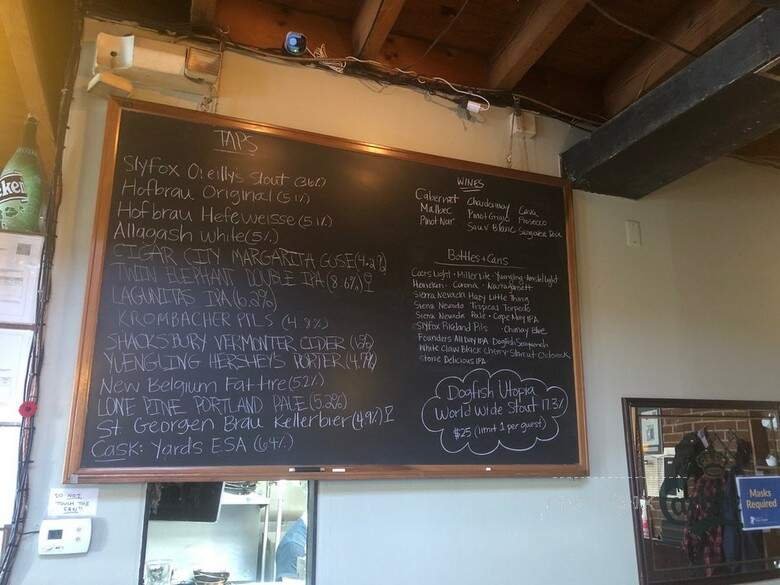 TAPS
Slyfox O'Reilly's Stout (3.6%)
Hofbrau Original (5.1%)
Hofbrau Hefeweisse (5.1%)
Allagash White (5%)
CIGAR CITY MARGARITA GOSE (4.2%)
TWIN ELEPHANT DOUBLE IPA (8.6%)
LAGUNITAS IPA (6.2%)
KROMBACHER PILS (4.8%)
SHACKSBURY VERMONTER CIDER
YUENGLING HERSHEY'S PORTER (4.7%)
New Belgium Fat tire (5.2%)
LONE PINE PORTLAND PALE (5.2%)
St Georgen Brau Kellerbier (4.9%)
Cask: Yards ESA (6.4%)
WINES
Cabernet Chardonnay Cava
Malbec Pinot Grigio Prosecco
Pinot Noir Sauv Blanc
Bottles + Cans
Coors Light · Miller Lite · Yuengling · Amstel Light
Heineken · Corona · Narragansett
Sierra Nevada Hazy Little Thing
Sierra Nevada Tropical Torpedo
Sierra Nevada Pale · Cape May IPA
Slyfox Pikeland Pils · Chimay Blue
Founders All Day IPA Dogfish Seaquench
White Claw Black Cherry
Stone Delicious IPA
Dogfish Utopia
World Wide Stout 17.3%
$25 (limit 1 per guest)
DO NOT
TOUCH THE
Masks
Required